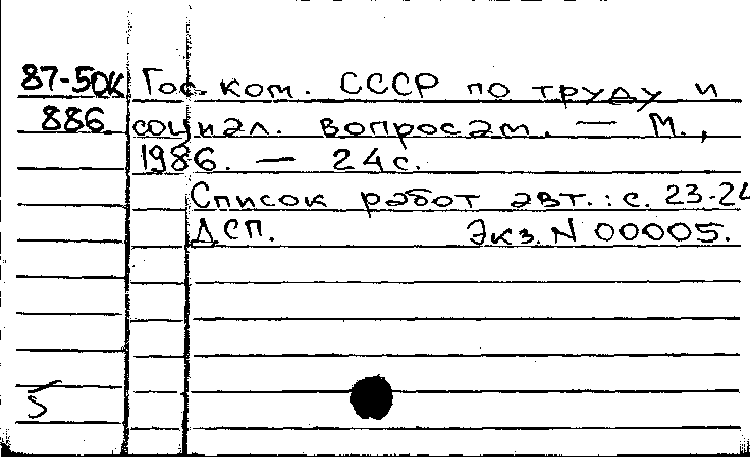 87-50к Гос. ком. СССР по труду и
886. социал. вопросам. — М.,
1986. — 24 с.
Список работ авт.: с. 23-24
ДСП. Экз. N 00005.
5